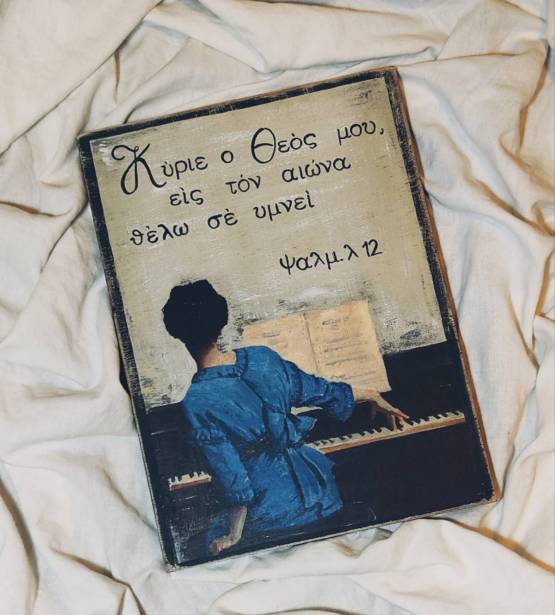 Κὺριε ο Θεὸς μου,
εὶς τόν αιώνα
θὲλω σὲ υμνεὶ
ψαλμ. λ 12